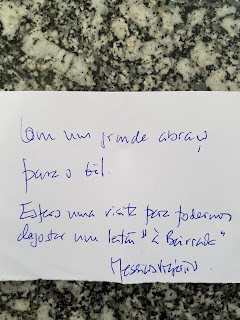 Com um grande abraço
para o
Espero uma visita para podermos
degostar um leitão "à Bairrada"